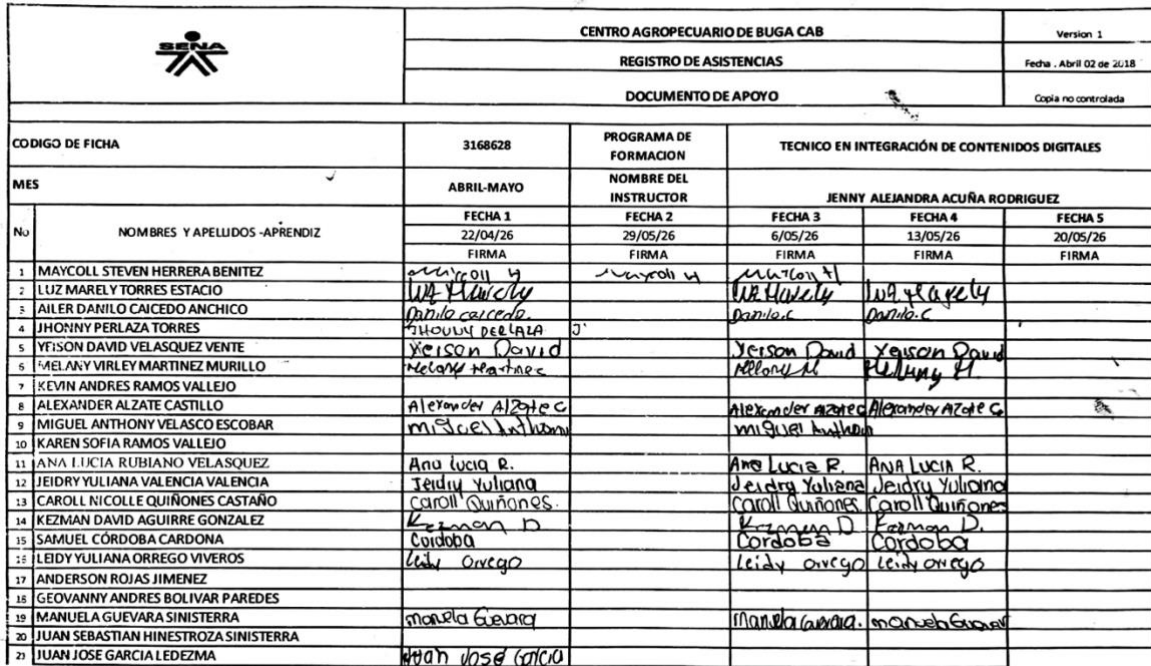 SENA
CENTRO AGROPECUARIO DE BUGA CAB
Version 1
REGISTRO DE ASISTENCIAS
Fecha . Abril 02 de 2018
DOCUMENTO DE APOYO
Copia no controlada
CODIGO DE FICHA 3168628 PROGRAMA DE FORMACION TECNICO EN INTEGRACIÓN DE CONTENIDOS DIGITALES
MES ABRIL-MAYO NOMBRE DEL INSTRUCTOR JENNY ALEJANDRA ACUÑA RODRIGUEZ
No NOMBRES Y APELLIDOS -APRENDIZ FECHA 1 FECHA 2 FECHA 3 FECHA 4 FECHA 5
22/04/26 29/05/26 6/05/26 13/05/26 20/05/26
FIRMA FIRMA FIRMA FIRMA FIRMA
1 MAYCOLL STEVEN HERRERA BENITEZ Maycoll H Maycoll H Maycoll H
2 LUZ MARELY TORRES ESTACIO Luz Marely Luz Marely Luz Marely
3 AILER DANILO CAICEDO ANCHICO Danilo caicedo. Danilo.C Danilo.C
4 JHONNY PERLAZA TORRES JHONNY PERLAZA J'
5 YEISON DAVID VELASQUEZ VENTE Yeison David Yeison David Yeison David
6 MELANY VIRLEY MARTINEZ MURILLO Melany Martinez Melany M Melany M.
7 KEVIN ANDRES RAMOS VALLEJO
8 ALEXANDER ALZATE CASTILLO Alexander AlZate C Alexander AlzateC Alexander AlZate C
9 MIGUEL ANTHONY VELASCO ESCOBAR miguel Anthony miguel Anthon
10 KAREN SOFIA RAMOS VALLEJO
11 ANA LUCIA RUBIANO VELASQUEZ Ana lucia R. Ana Lucia R. ANA LUCIA R.
12 JEIDRY YULIANA VALENCIA VALENCIA Jeidry Yuliana Jeidry Yuliana Jeidry Yuliana
13 CAROLL NICOLLE QUIÑONES CASTAÑO Caroll Quiñones. Caroll Quiñones Caroll Quiñones
14 KEZMAN DAVID AGUIRRE GONZALEZ Kezman D Kezman D. Kezman D.
15 SAMUEL CÓRDOBA CARDONA Cordoba Cordoba Cordoba
16 LEIDY YULIANA ORREGO VIVEROS Leidy orrego Leidy orrego Leidy orrego
17 ANDERSON ROJAS JIMENEZ
18 GEOVANNY ANDRES BOLIVAR PAREDES
19 MANUELA GUEVARA SINISTERRA manuela Guevara manuela Guevara. manuela Guevara
20 JUAN SEBASTIAN HINESTROZA SINISTERRA
21 JUAN JOSE GARCIA LEDEZMA Juan José Garcia